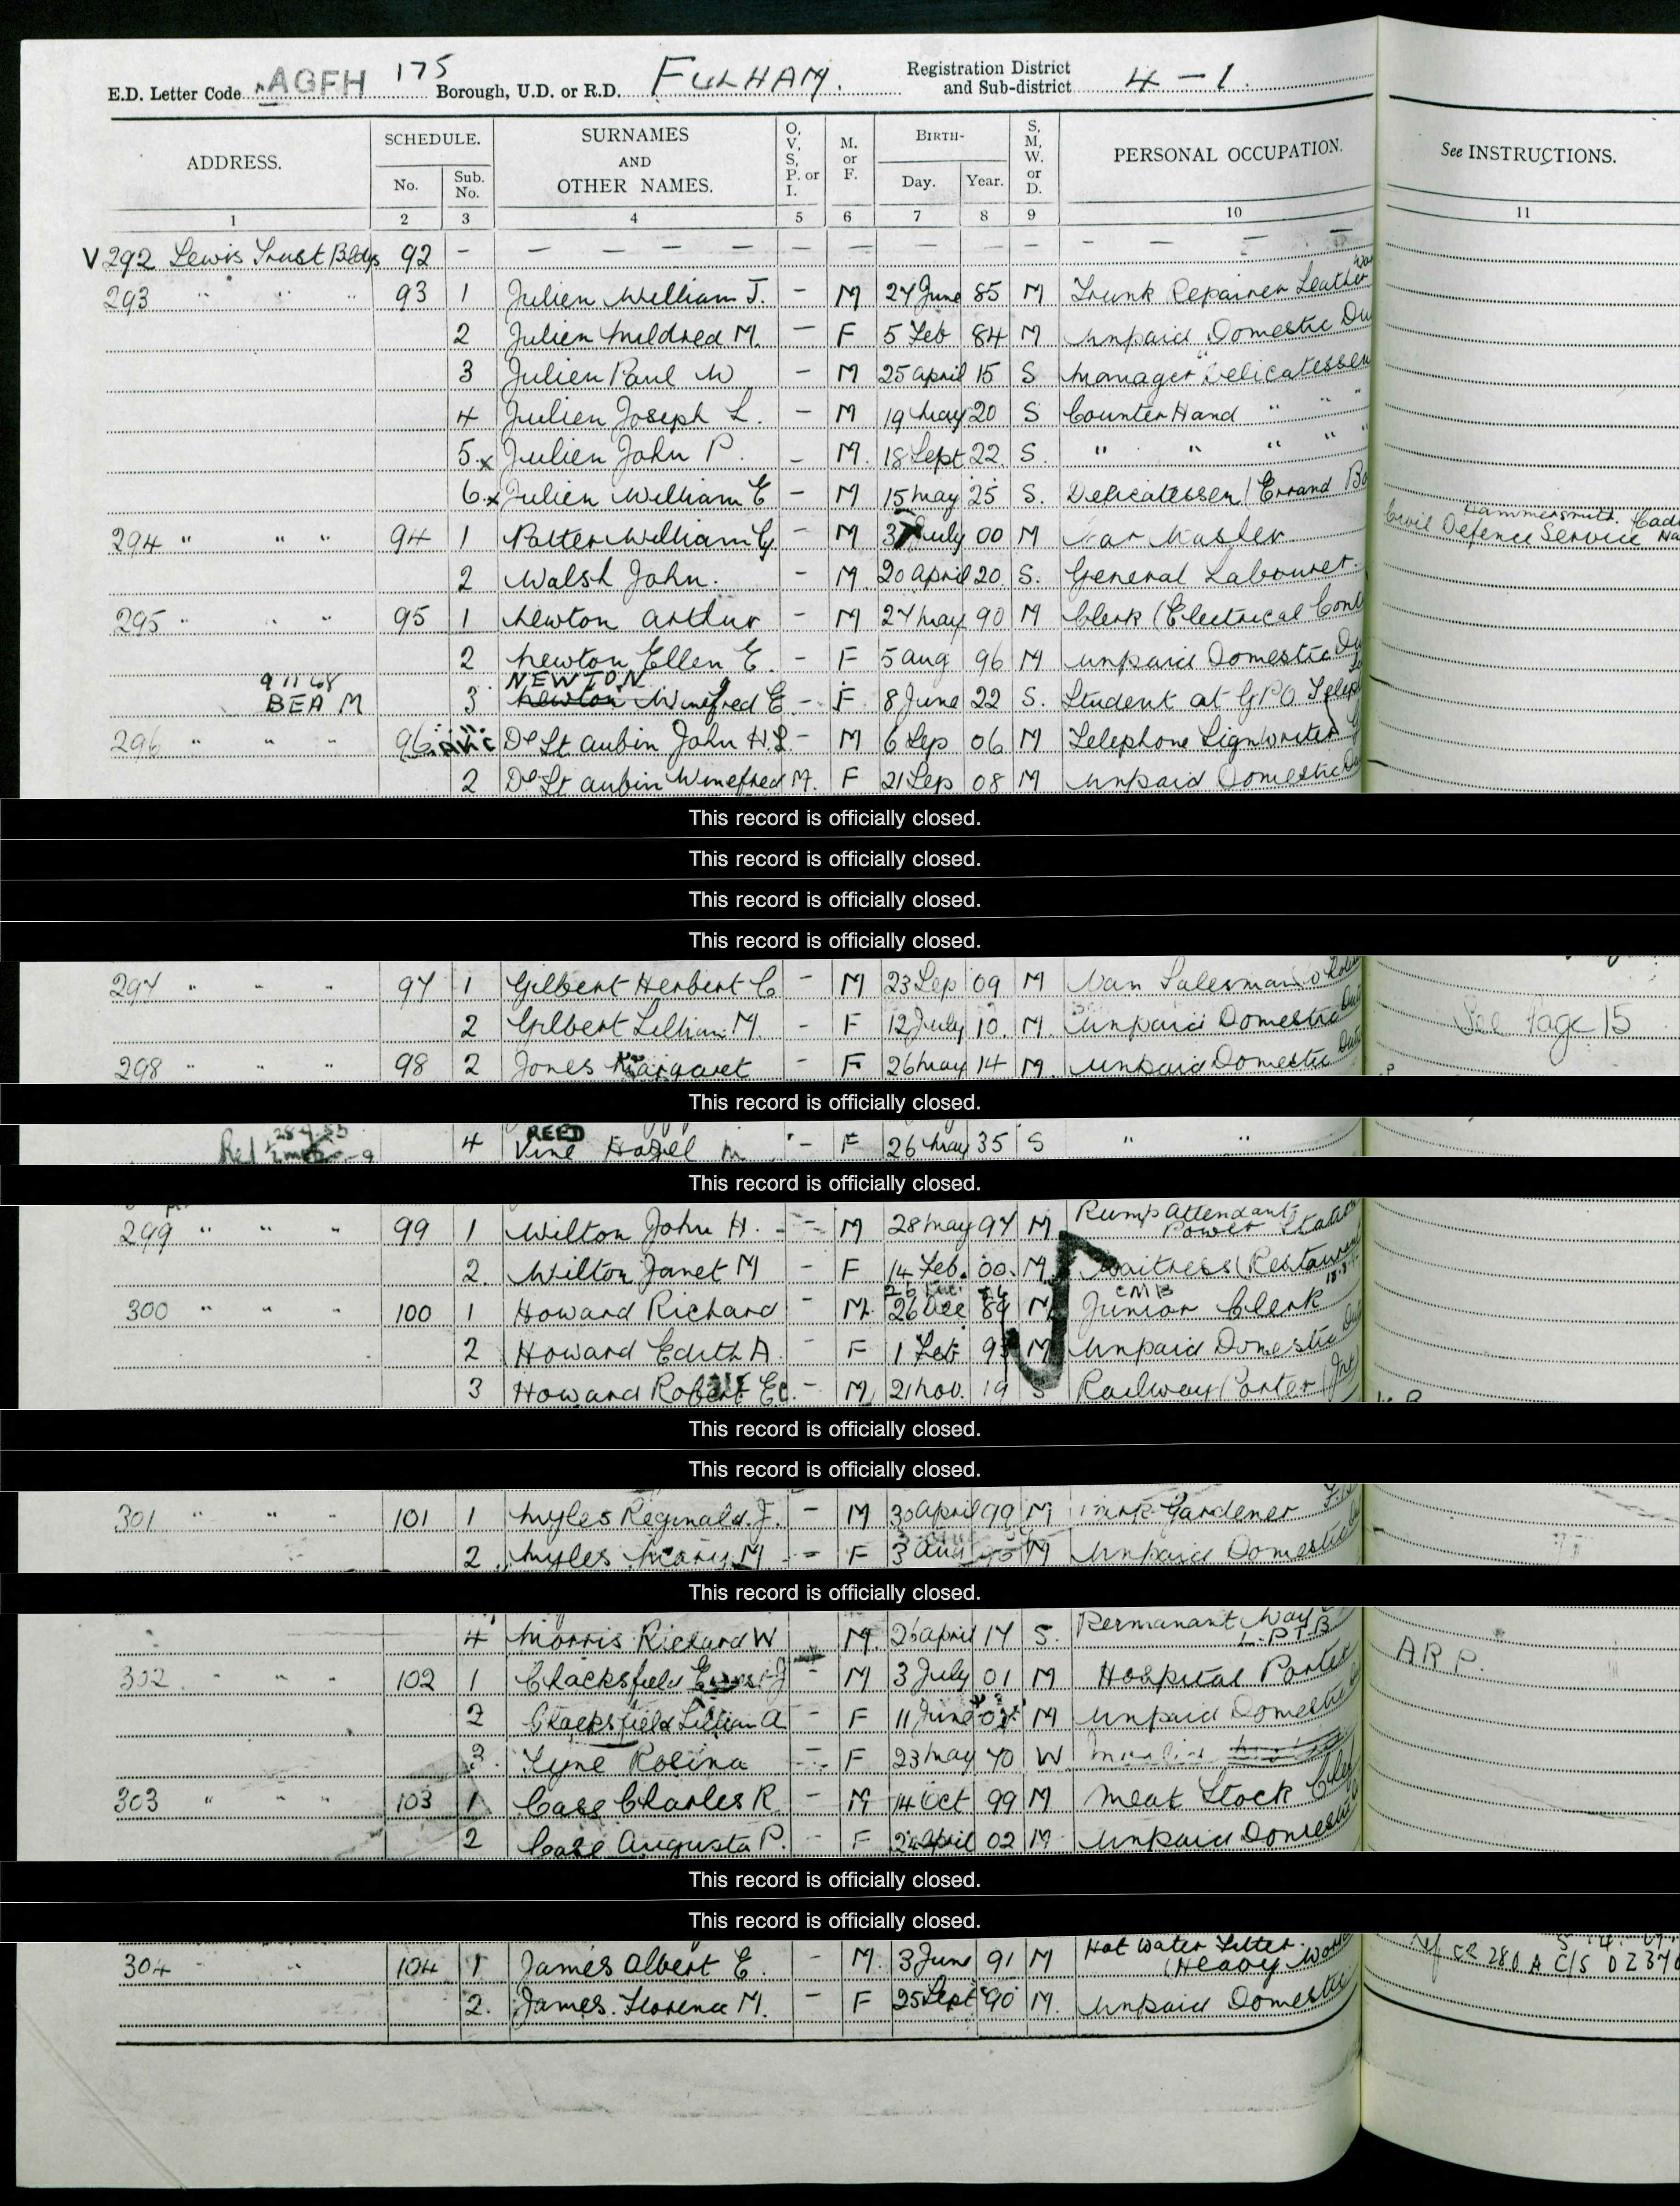 E.D. Letter Code AGFH 175 Borough, U.D. or R.D. FULHAM. Registration District and Sub-district 4 - 1.
ADDRESS. SCHEDULE. No. Sub. No. SURNAMES AND OTHER NAMES. O, V, S, P. or I. M. or F. BIRTH- Day. Year. S, M, W. or D. PERSONAL OCCUPATION. See INSTRUCTIONS.
1 2 3 4 5 6 7 8 9 10 11
V 292 Lewis Trust Bldgs 92 - - - - - - - - - - - - -
293 " " " 93 1 Julien William J. - M 27 June 85 M Trunk Repairer Leather
2 Julien Mildred M. - F 5 Feb 84 M Unpaid Domestic Du
3 Julien Paul W - M 25 April 15 S Manager Delicatessen
4 Julien Joseph L. - M 19 May 20 S Counter Hand " " "
5 x Julien John P. - M. 18 Sept 22. S. " " " " "
6 x Julien William E - M 15 May 25 S. Delicatessen Errand Bo
294 " " " 94 1 Potter William G. - M July 00 M Hammersmith. Civil Defence Service
2 Walsh John. - M. 20 April 20. S. General Labourer.
295 " " " 95 1 Newton Arthur - M 27 May 90 M Clerk (Electrical Cont
2 Newton Ellen E. - F 5 Aug 96 M Unpaid Domestic Du
9 11 68 BEA M 3 NEWTON Newton Winefred E - F 8 June 22 S. Student at G.P.O. Teleph
296 " " " 96 De St Aubin John H.L - M 6 Sep 06 M Telephone Signwriter
2 De St Aubin Winefred M. F 21 Sep 08 M Unpaid Domestic Du
This record is officially closed.
This record is officially closed.
This record is officially closed.
This record is officially closed.
297 " " " 97 1 Gilbert Herbert C - M 23 Sep 09 M Van Salesman
2 Gilbert Lillian M. - F 12 July 10. M. Unpaid Domestic Duti See Page 15
298 " " " 98 2 Jones Margaret - F 26 May 14 M. Unpaid Domestic Duti
This record is officially closed.
4 REED Vine Hazel M - F 26 May 35 S " "
This record is officially closed.
299 " " " 99 1 Wilton John H. - M 28 May 97 M Pump Attendant Power Station
2. Wilton Janet M - F 14 Feb. 00. M. Waitress (Restaurant
300 " " " 100 1 Howard Richard - M. 26 Dec 89 M CMB Junior Clerk
2 Howard Edith A. - F 1 Feb 93 M Unpaid Domestic Du
3 Howard Robert - M 21 Nov. 19 S Railway Porter
This record is officially closed.
This record is officially closed.
301 " " " 101 1 Myles Reginald. J. - M 30 April 99 M Park Gardener
2. Myles Mary M - F 3 Aug M Unpaid Domestic
This record is officially closed.
4 Morris Richard W M. 26 April 17 S. Permanant Way L.P.T.B
302 " " " 102 1 Clacksfield - M 3 July 01 M Hospital Porter A R P.
2 Clacksfield Lillian A - F 11 June M Unpaid Domestic
3. Lyne Rosina - F 23 May 70 W
303 " " " 103 1 Case Charles R - M 14 Oct 99 M Meat Stock
2 Case Augusta P. - F 24 April 02 M Unpaid Domestic
This record is officially closed.
This record is officially closed.
304 " " 104 1 James Albert E. - M. 3 June 91 M Hot Water Fitter. (Heavy Wor CR 280 A C/S
2. James. Florence M. - F 25 Sept 90 M. Unpaid Domestic